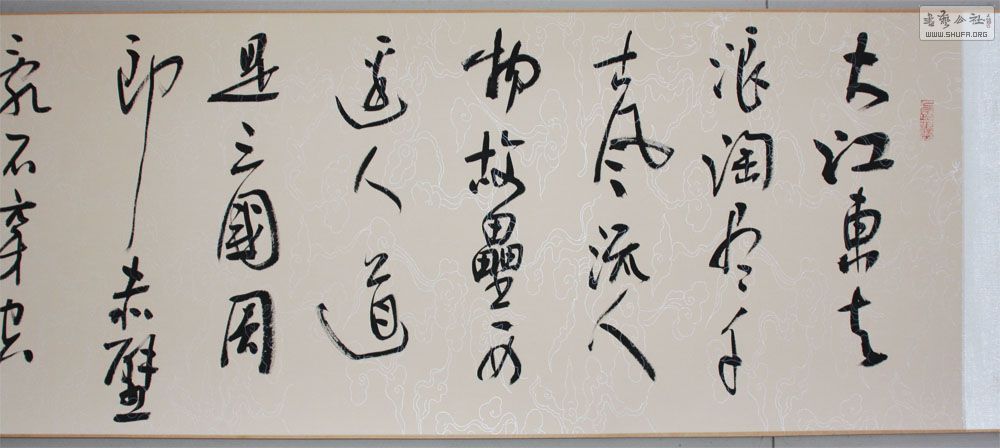 大江東去
浪淘盡千
古風流人
物故壘西
邊人道
是三國周
郎赤壁
亂石穿空
書藝公社
WWW.SHUFA.ORG